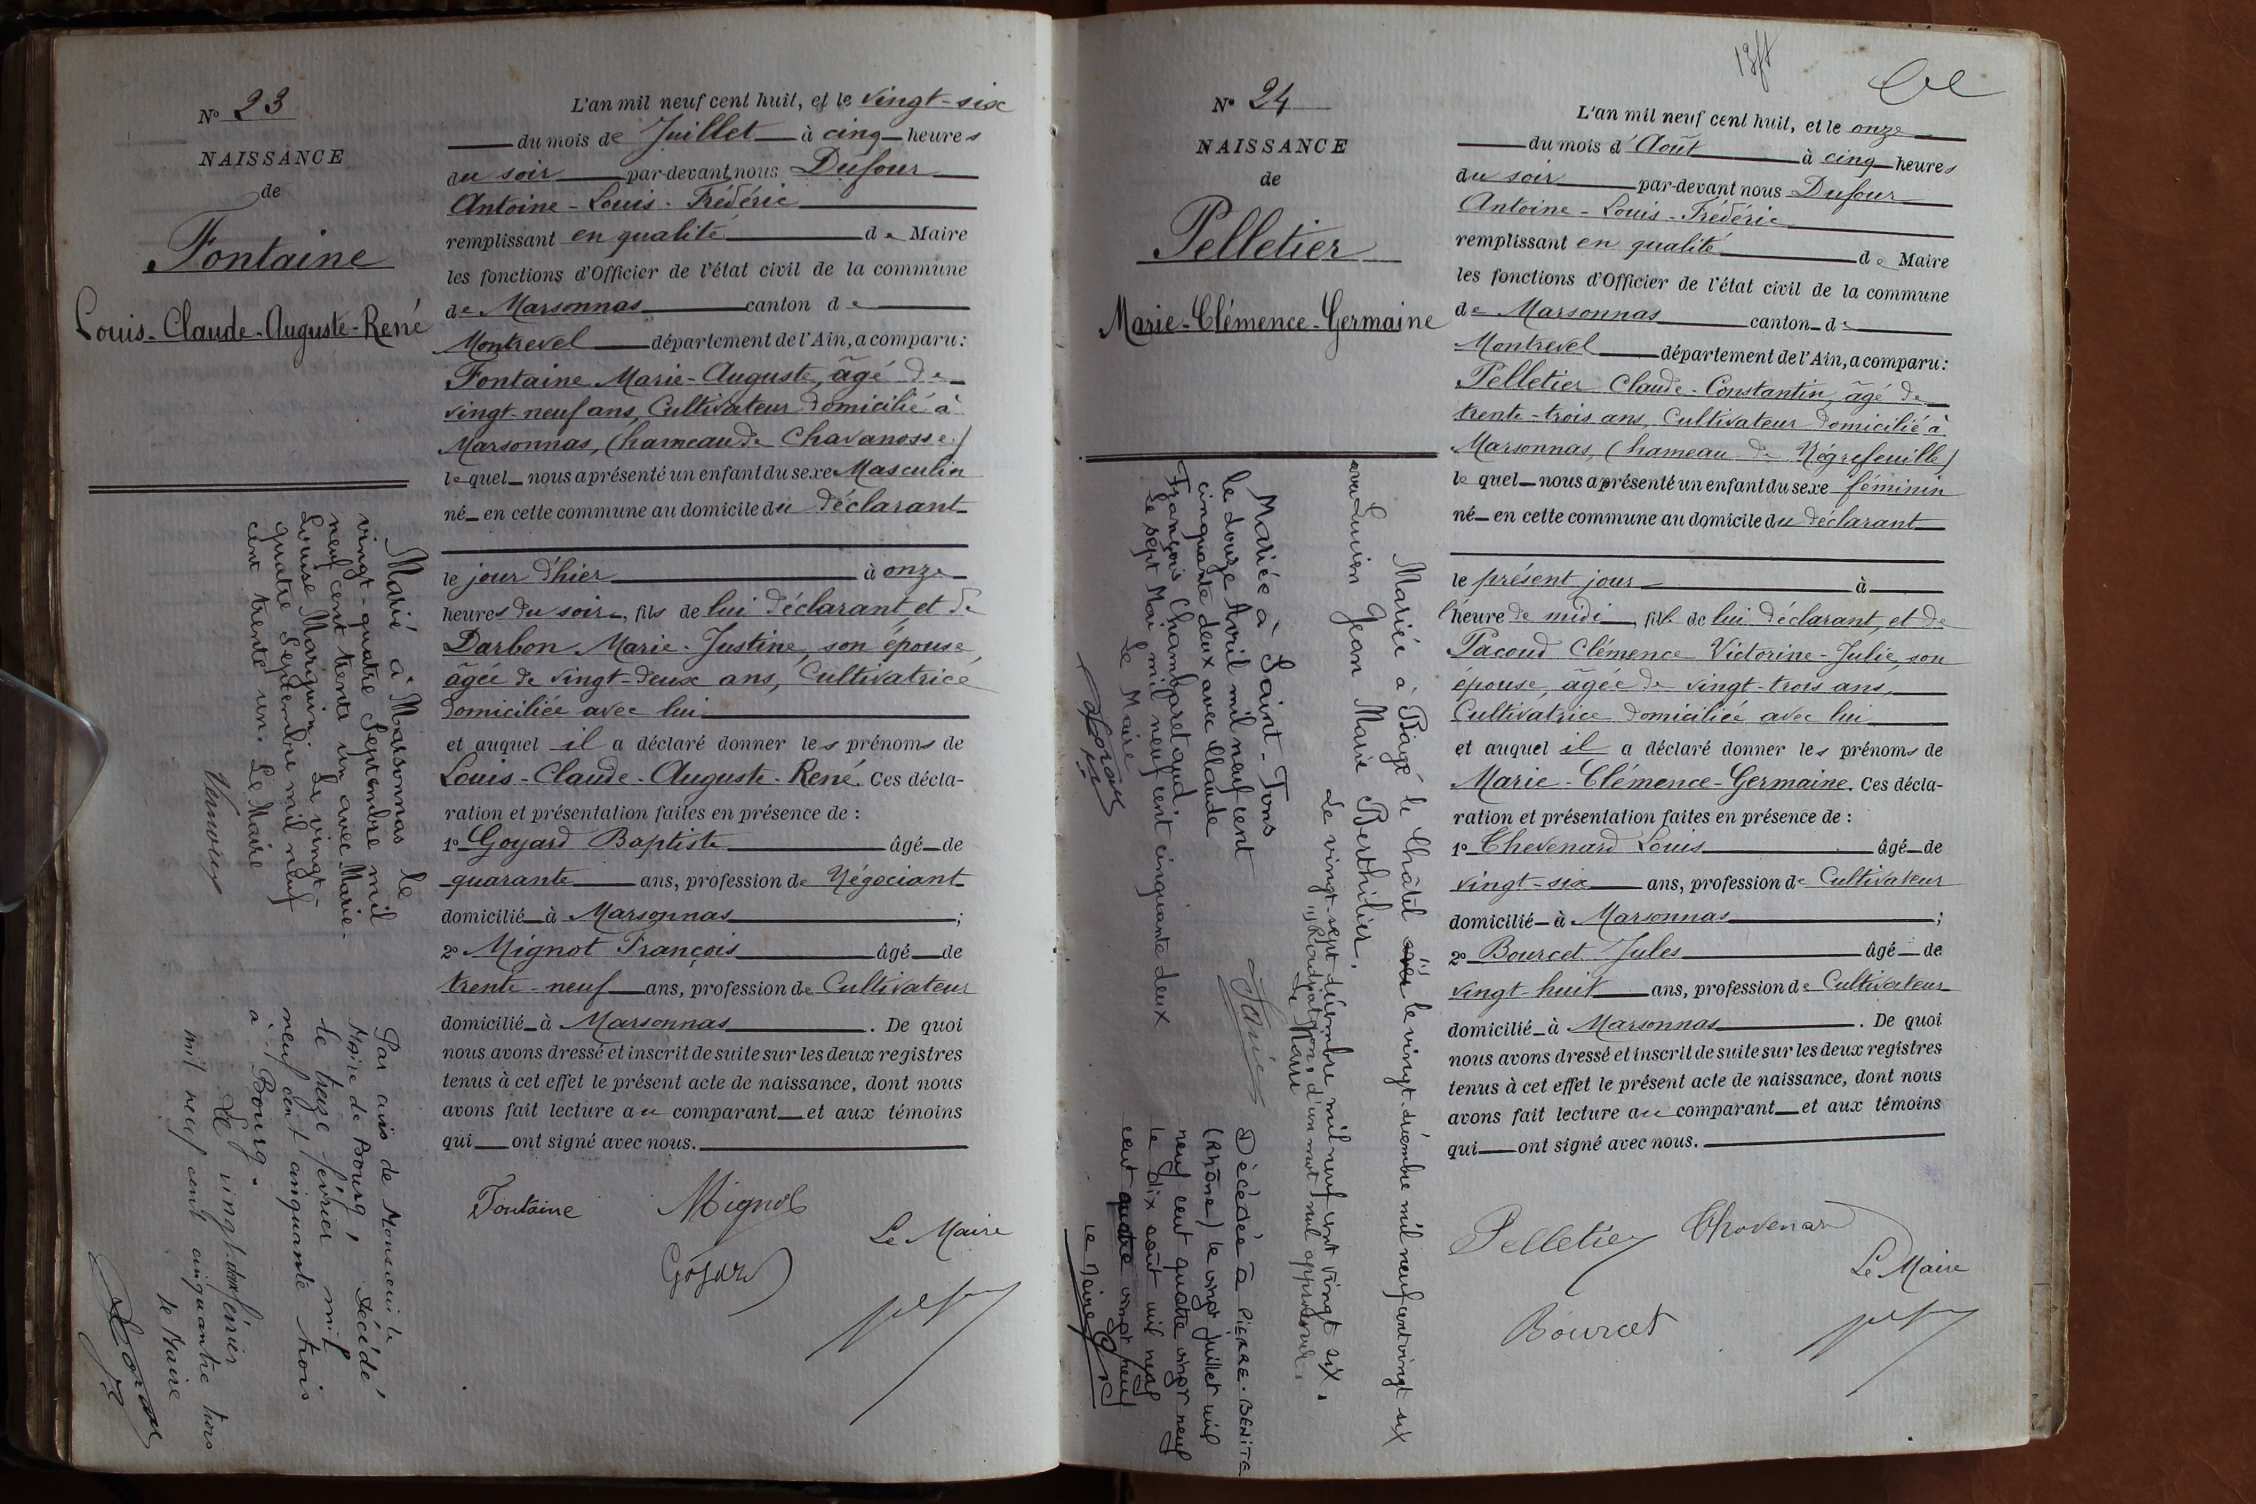 N° 23
NAISSANCE
de
Fontaine
Louis-Claude-Auguste-René
L'an mil neuf cent huit, et le vingt-six
du mois de Juillet à cinq heures
du soir par-devant nous Dufour
Antoine-Louis-Frédéric
remplissant en qualité de Maire
les fonctions d'Officier de l'état civil de la commune
de Marsonnas canton de
Montrevel département de l'Ain, a comparu:
Fontaine Marie-Auguste, âgé de
vingt-neuf ans, Cultivateur domicilié à
Marsonnas, (hameau de Chavanosse)
lequel nous a présenté un enfant du sexe Masculin
né en cette commune au domicile du déclarant
le jour d'hier à onze
heures du soir, fils de lui déclarant, et de
Darbon Marie-Justine, son épouse,
âgée de vingt-deux ans, Cultivatrice
domiciliée avec lui
et auquel il a déclaré donner les prénoms de
Louis-Claude-Auguste-René. Ces décla-
ration et présentation faites en présence de :
1° Goyard Baptiste âgé de
quarante ans, profession de Négociant
domicilié à Marsonnas ;
2° Mignot François âgé de
trente-neuf ans, profession de Cultivateur
domicilié à Marsonnas . De quoi
nous avons dressé et inscrit de suite sur les deux registres
tenus à cet effet le présent acte de naissance, dont nous
avons fait lecture au comparant et aux témoins
qui ont signé avec nous.
Fontaine Mignot
Le Maire
Goyard
Marié à Marsonnas le
vingt-quatre Septembre mil
neuf cent trente un avec Marie-
Louise Marguin. Le vingt-
quatre Septembre mil neuf
cent trente un. Le Maire
Par avis de Monsieur le
Maire de Bourg, décédé
le treize février mil
neuf cent cinquante trois
à Bourg.
Le vingt deux février
mil neuf cent cinquante trois
Le Maire
N° 24
NAISSANCE
de
Pelletier
Marie-Clémence-Germaine
L'an mil neuf cent huit, et le onze
du mois d'Août à cinq heures
du soir par-devant nous Dufour
Antoine-Louis-Frédéric
remplissant en qualité de Maire
les fonctions d'Officier de l'état civil de la commune
de Marsonnas canton de
Montrevel département de l'Ain, a comparu:
Pelletier Claude-Constantin, âgé de
trente-trois ans, Cultivateur domicilié à
Marsonnas, (hameau de Négrefeuille)
lequel nous a présenté un enfant du sexe féminin
né en cette commune au domicile du déclarant
le présent jour à
l'heure de midi, fille de lui déclarant, et de
Pacoud Clémence Victorine-Julie, son
épouse, âgée de vingt-trois ans,
Cultivatrice domiciliée avec lui
et auquel il a déclaré donner les prénoms de
Marie-Clémence-Germaine. Ces décla-
ration et présentation faites en présence de :
1° Chevenard Louis âgé de
vingt-six ans, profession de Cultivateur
domicilié à Marsonnas ;
2° Bourcet Jules âgé de
vingt-huit ans, profession de Cultivateur
domicilié à Marsonnas . De quoi
nous avons dressé et inscrit de suite sur les deux registres
tenus à cet effet le présent acte de naissance, dont nous
avons fait lecture au comparant et aux témoins
qui ont signé avec nous.
Pelletier Chevenard
Le Maire
Bourcet
Mariée à Bâgé le Châtel avec le vingt décembre mil neuf cent vingt six
avec Lucien Jean Marie Berthilier.
Le vingt-sept décembre mil neuf cent vingt six.
Radiation d'un mot nul approuvée.
Le Maire
Mariée à Saint-Fons
le douze Avril mil neuf cent
cinquante deux avec Claude
François Chambaretaud.
Le sept Mai mil neuf cent cinquante deux
Le Maire
Décédée à PIERRE-BENITE
(Rhône) le vingt juillet mil
neuf cent quatre vingt neuf
le dix août mil neuf
cent quatre vingt neuf
Le Maire